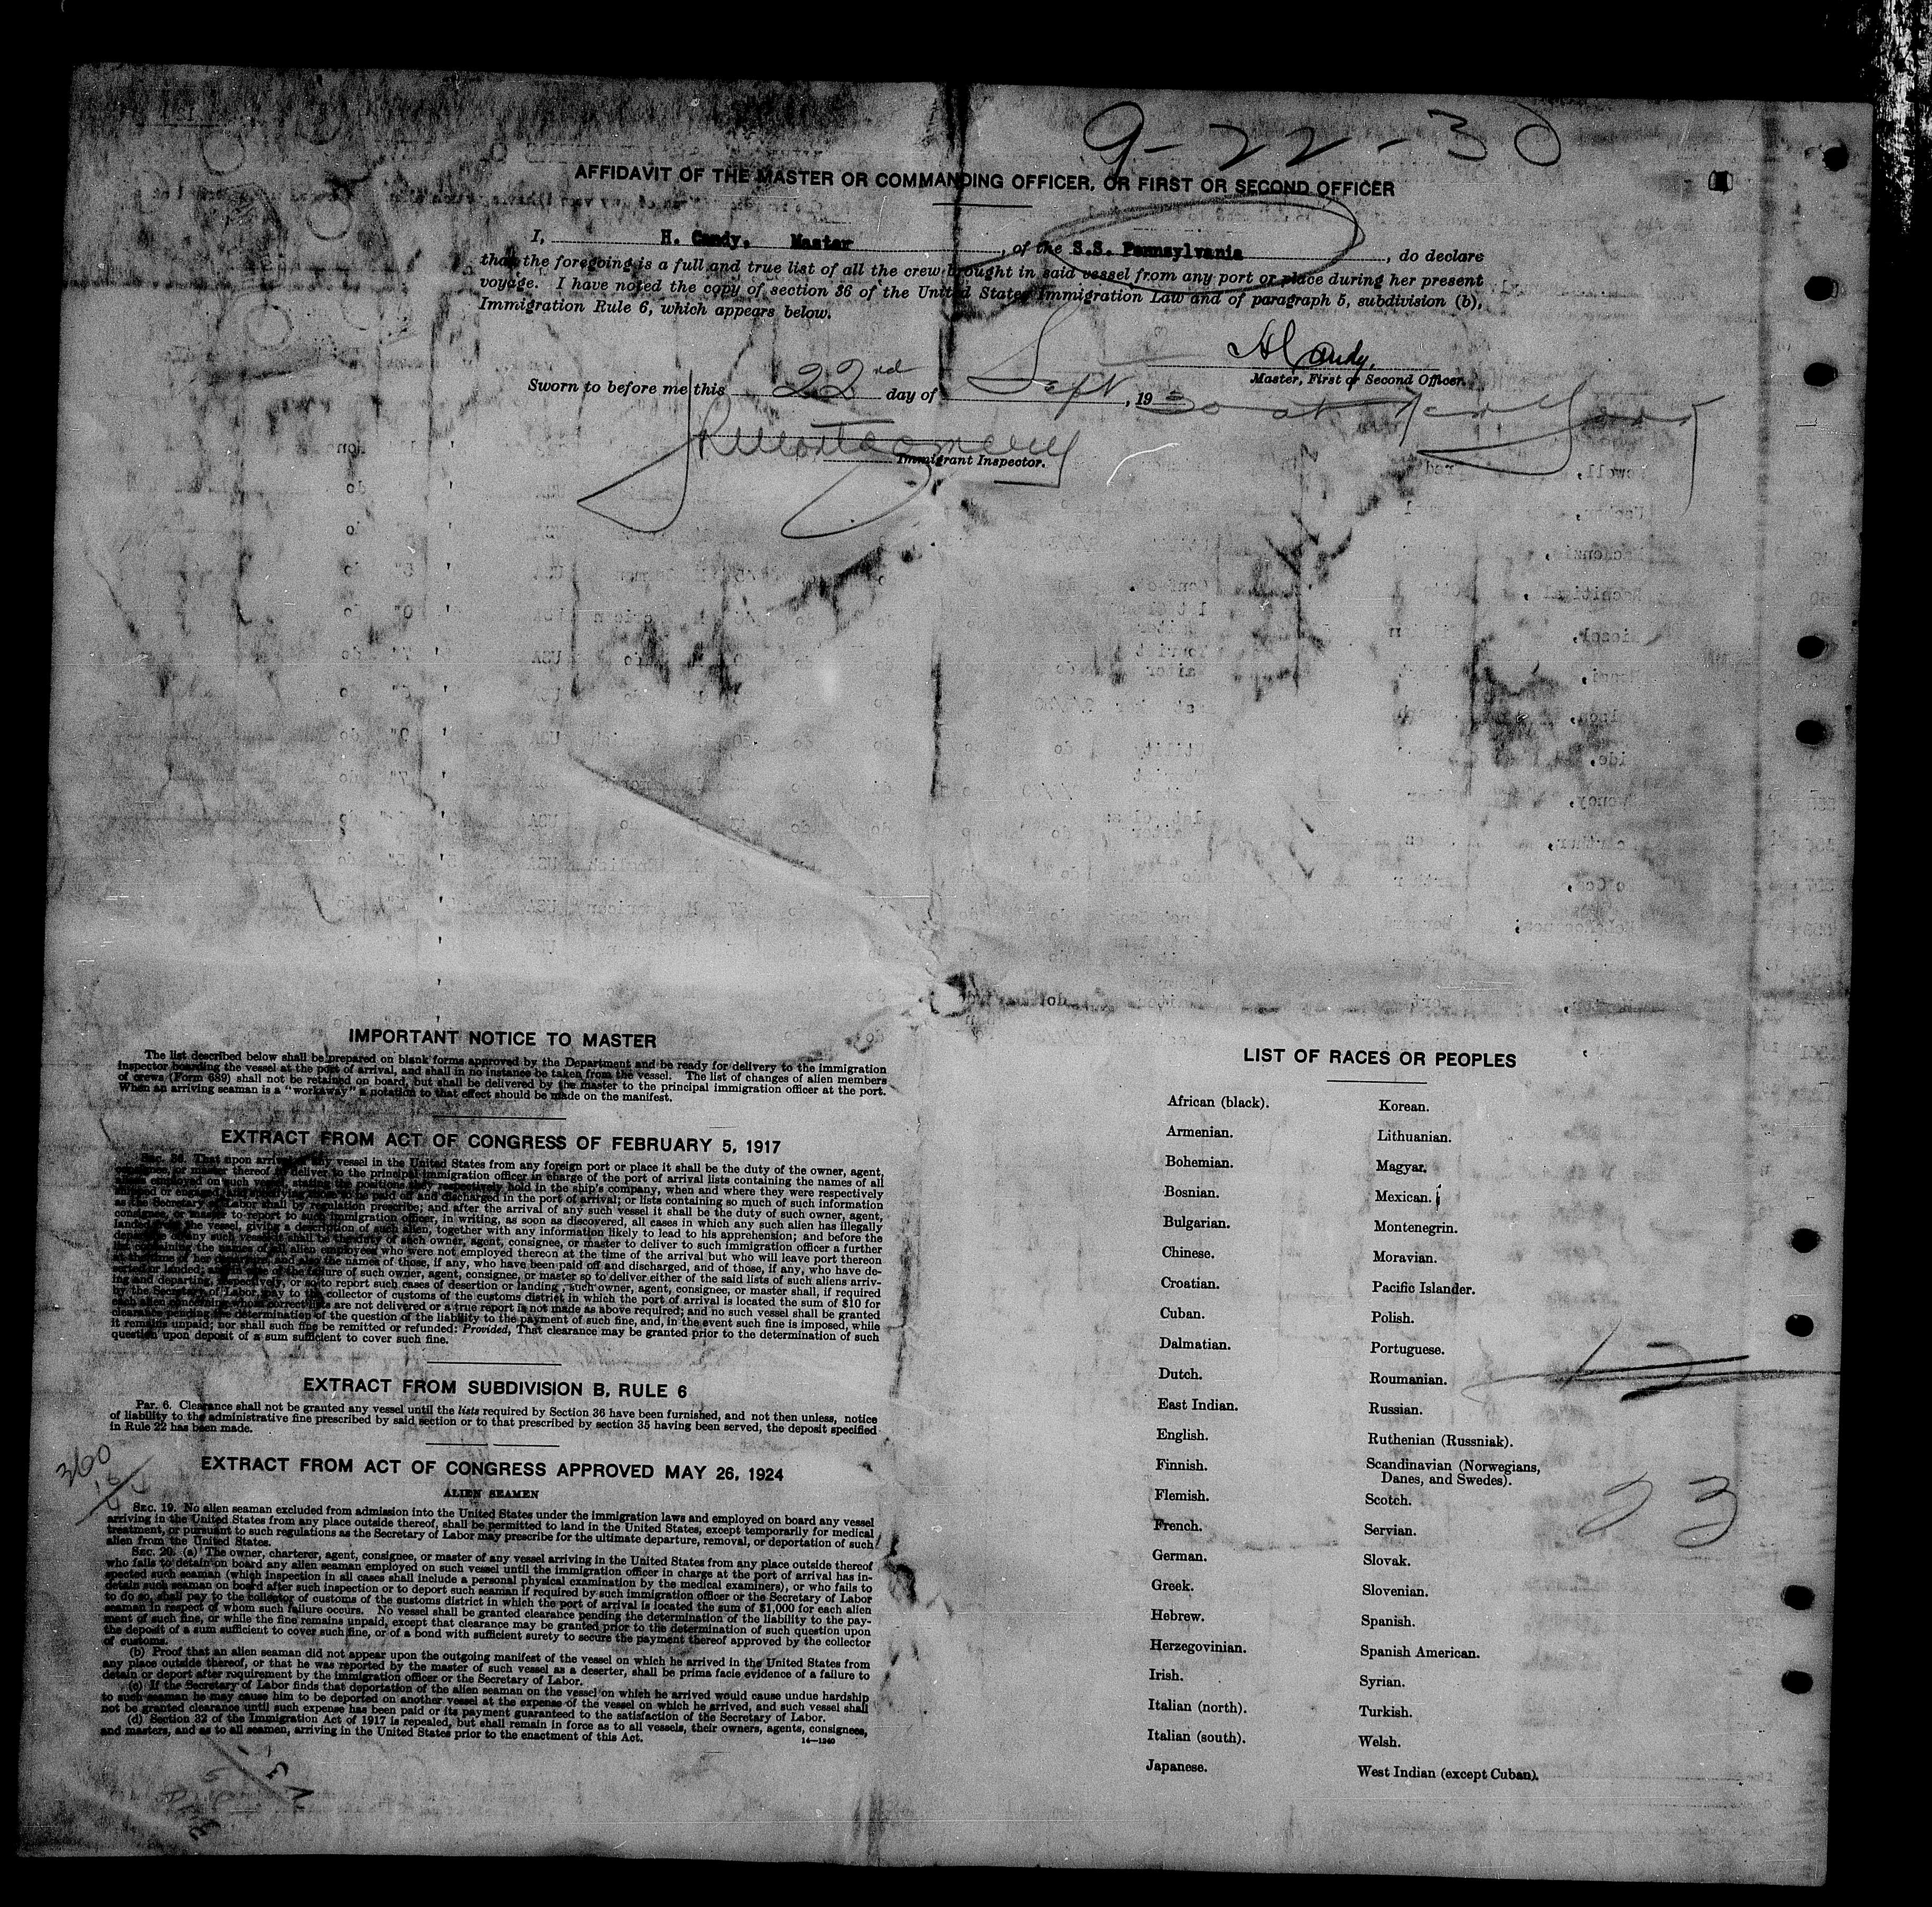 9-22-30
AFFIDAVIT OF THE MASTER OR COMMANDING OFFICER, OR FIRST OR SECOND OFFICER
I, H. Candy, Master, of the S.S. Pennsylvania, do declare
that the foregoing is a full and true list of all the crew brought in said vessel from any port or place during her present
voyage. I have noted the copy of section 36 of the United States Immigration Law and of paragraph 5, subdivision (b),
Immigration Rule 6, which appears below.
H Candy,
Master, First or Second Officer.
Sworn to before me this 22nd day of Sept, 1930 at New York
Montgomery
Immigrant Inspector.
IMPORTANT NOTICE TO MASTER
The list described below shall be prepared on blank forms approved by the Department and be ready for delivery to the immigration
inspector boarding the vessel at the port of arrival, and shall in no instance be taken from the vessel. The list of changes of alien members
of crews (Form 689) shall not be retained on board, but shall be delivered by the master to the principal immigration officer at the port.
When an arriving seaman is a "workaway" a notation to that effect should be made on the manifest.
EXTRACT FROM ACT OF CONGRESS OF FEBRUARY 5, 1917
Sec. 36. That upon arrival of any vessel in the United States from any foreign port or place it shall be the duty of the owner, agent,
consignee, or master thereof to deliver to the principal immigration officer in charge of the port of arrival lists containing the names of all
aliens employed on such vessel, stating the positions they respectively hold in the ship's company, when and where they were respectively
shipped or engaged, and specifying those to be paid off and discharged in the port of arrival; or lists containing so much of such information
as the Secretary of Labor shall by regulation prescribe; and after the arrival of any such vessel it shall be the duty of such owner, agent,
consignee, or master to report to such immigration officer, in writing, as soon as discovered, all cases in which any such alien has illegally
landed from the vessel, giving a description of such alien, together with any information likely to lead to his apprehension; and before the
departure of any such vessel it shall be the duty of such owner, agent, consignee, or master to deliver to such immigration officer a further
list containing the names of all alien employees who were not employed thereon at the time of the arrival but who will leave port thereon
at the time of her departure, and also the names of those, if any, who have been paid off and discharged, and of those, if any, who have de-
serted or landed; and in case of the failure of such owner, agent, consignee, or master so to deliver either of the said lists of such aliens arriv-
ing and departing, respectively, or so to report such cases of desertion or landing, such owner, agent, consignee, or master shall, if required
by the Secretary of Labor, pay to the collector of customs of the customs district in which the port of arrival is located the sum of $10 for
each alien concerning whom correct lists are not delivered or a true report is not made as above required; and no such vessel shall be granted
clearance pending the determination of the question of the liability to the payment of such fine, and, in the event such fine is imposed, while
it remains unpaid; nor shall such fine be remitted or refunded: Provided, That clearance may be granted prior to the determination of such
question upon deposit of a sum sufficient to cover such fine.
EXTRACT FROM SUBDIVISION B, RULE 6
Par. 6. Clearance shall not be granted any vessel until the lists required by Section 36 have been furnished, and not then unless, notice
of liability to the administrative fine prescribed by said section or to that prescribed by section 35 having been served, the deposit specified
in Rule 22 has been made.
360
EXTRACT FROM ACT OF CONGRESS APPROVED MAY 26, 1924
ALIEN SEAMEN
Sec. 19. No alien seaman excluded from admission into the United States under the immigration laws and employed on board any vessel
arriving in the United States from any place outside thereof, shall be permitted to land in the United States, except temporarily for medical
treatment, or pursuant to such regulations as the Secretary of Labor may prescribe for the ultimate departure, removal, or deportation of such
alien from the United States.
Sec. 20. (a) The owner, charterer, agent, consignee, or master of any vessel arriving in the United States from any place outside thereof
who fails to detain on board any alien seaman employed on such vessel until the immigration officer in charge at the port of arrival has in-
spected such seaman (which inspection in all cases shall include a personal physical examination by the medical examiners), or who fails to
detain such seaman on board after such inspection or to deport such seaman if required by such immigration officer or the Secretary of Labor
to do so, shall pay to the collector of customs of the customs district in which the port of arrival is located the sum of $1,000 for each alien
seaman in respect of whom such failure occurs. No vessel shall be granted clearance pending the determination of the liability to the pay-
ment of such fine, or while the fine remains unpaid, except that clearance may be granted prior to the determination of such question upon
the deposit of a sum sufficient to cover such fine, or of a bond with sufficient surety to secure the payment thereof approved by the collector
of customs.
(b) Proof that an alien seaman did not appear upon the outgoing manifest of the vessel on which he arrived in the United States from
any place outside thereof, or that he was reported by the master of such vessel as a deserter, shall be prima facie evidence of a failure to
detain or deport after requirement by the immigration officer or the Secretary of Labor.
(c) If the Secretary of Labor finds that deportation of the alien seaman on the vessel on which he arrived would cause undue hardship
to such seaman he may cause him to be deported on another vessel at the expense of the vessel on which he arrived, and such vessel shall
not be granted clearance until such expense has been paid or its payment guaranteed to the satisfaction of the Secretary of Labor.
(d) Section 32 of the Immigration Act of 1917 is repealed, but shall remain in force as to all vessels, their owners, agents, consignees,
and masters, and as to all seamen, arriving in the United States prior to the enactment of this Act.
14—1240
LIST OF RACES OR PEOPLES
African (black).
Armenian.
Bohemian.
Bosnian.
Bulgarian.
Chinese.
Croatian.
Cuban.
Dalmatian.
Dutch.
East Indian.
English.
Finnish.
Flemish.
French.
German.
Greek.
Hebrew.
Herzegovinian.
Irish.
Italian (north).
Italian (south).
Japanese.
Korean.
Lithuanian.
Magyar.
Mexican.
Montenegrin.
Moravian.
Pacific Islander.
Polish.
Portuguese.
Roumanian.
Russian.
Ruthenian (Russniak).
Scandinavian (Norwegians,
Danes, and Swedes).
Scotch.
Servian.
Slovak.
Slovenian.
Spanish.
Spanish American.
Syrian.
Turkish.
Welsh.
West Indian (except Cuban).
23